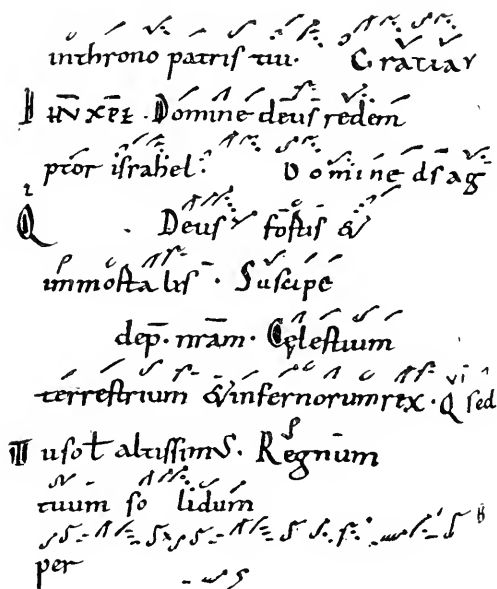 in throno patris tui. Gratiar
IHU XPE. Domine deus redem
ptor israhel. Domine ds ag
Q Deus fortis &
immortalis. Suscipe
dep. nram. Celestium
terrestrium & infernorum rex. Q sed
Tu sol altissimus. Regnum
tuum so lidum
per